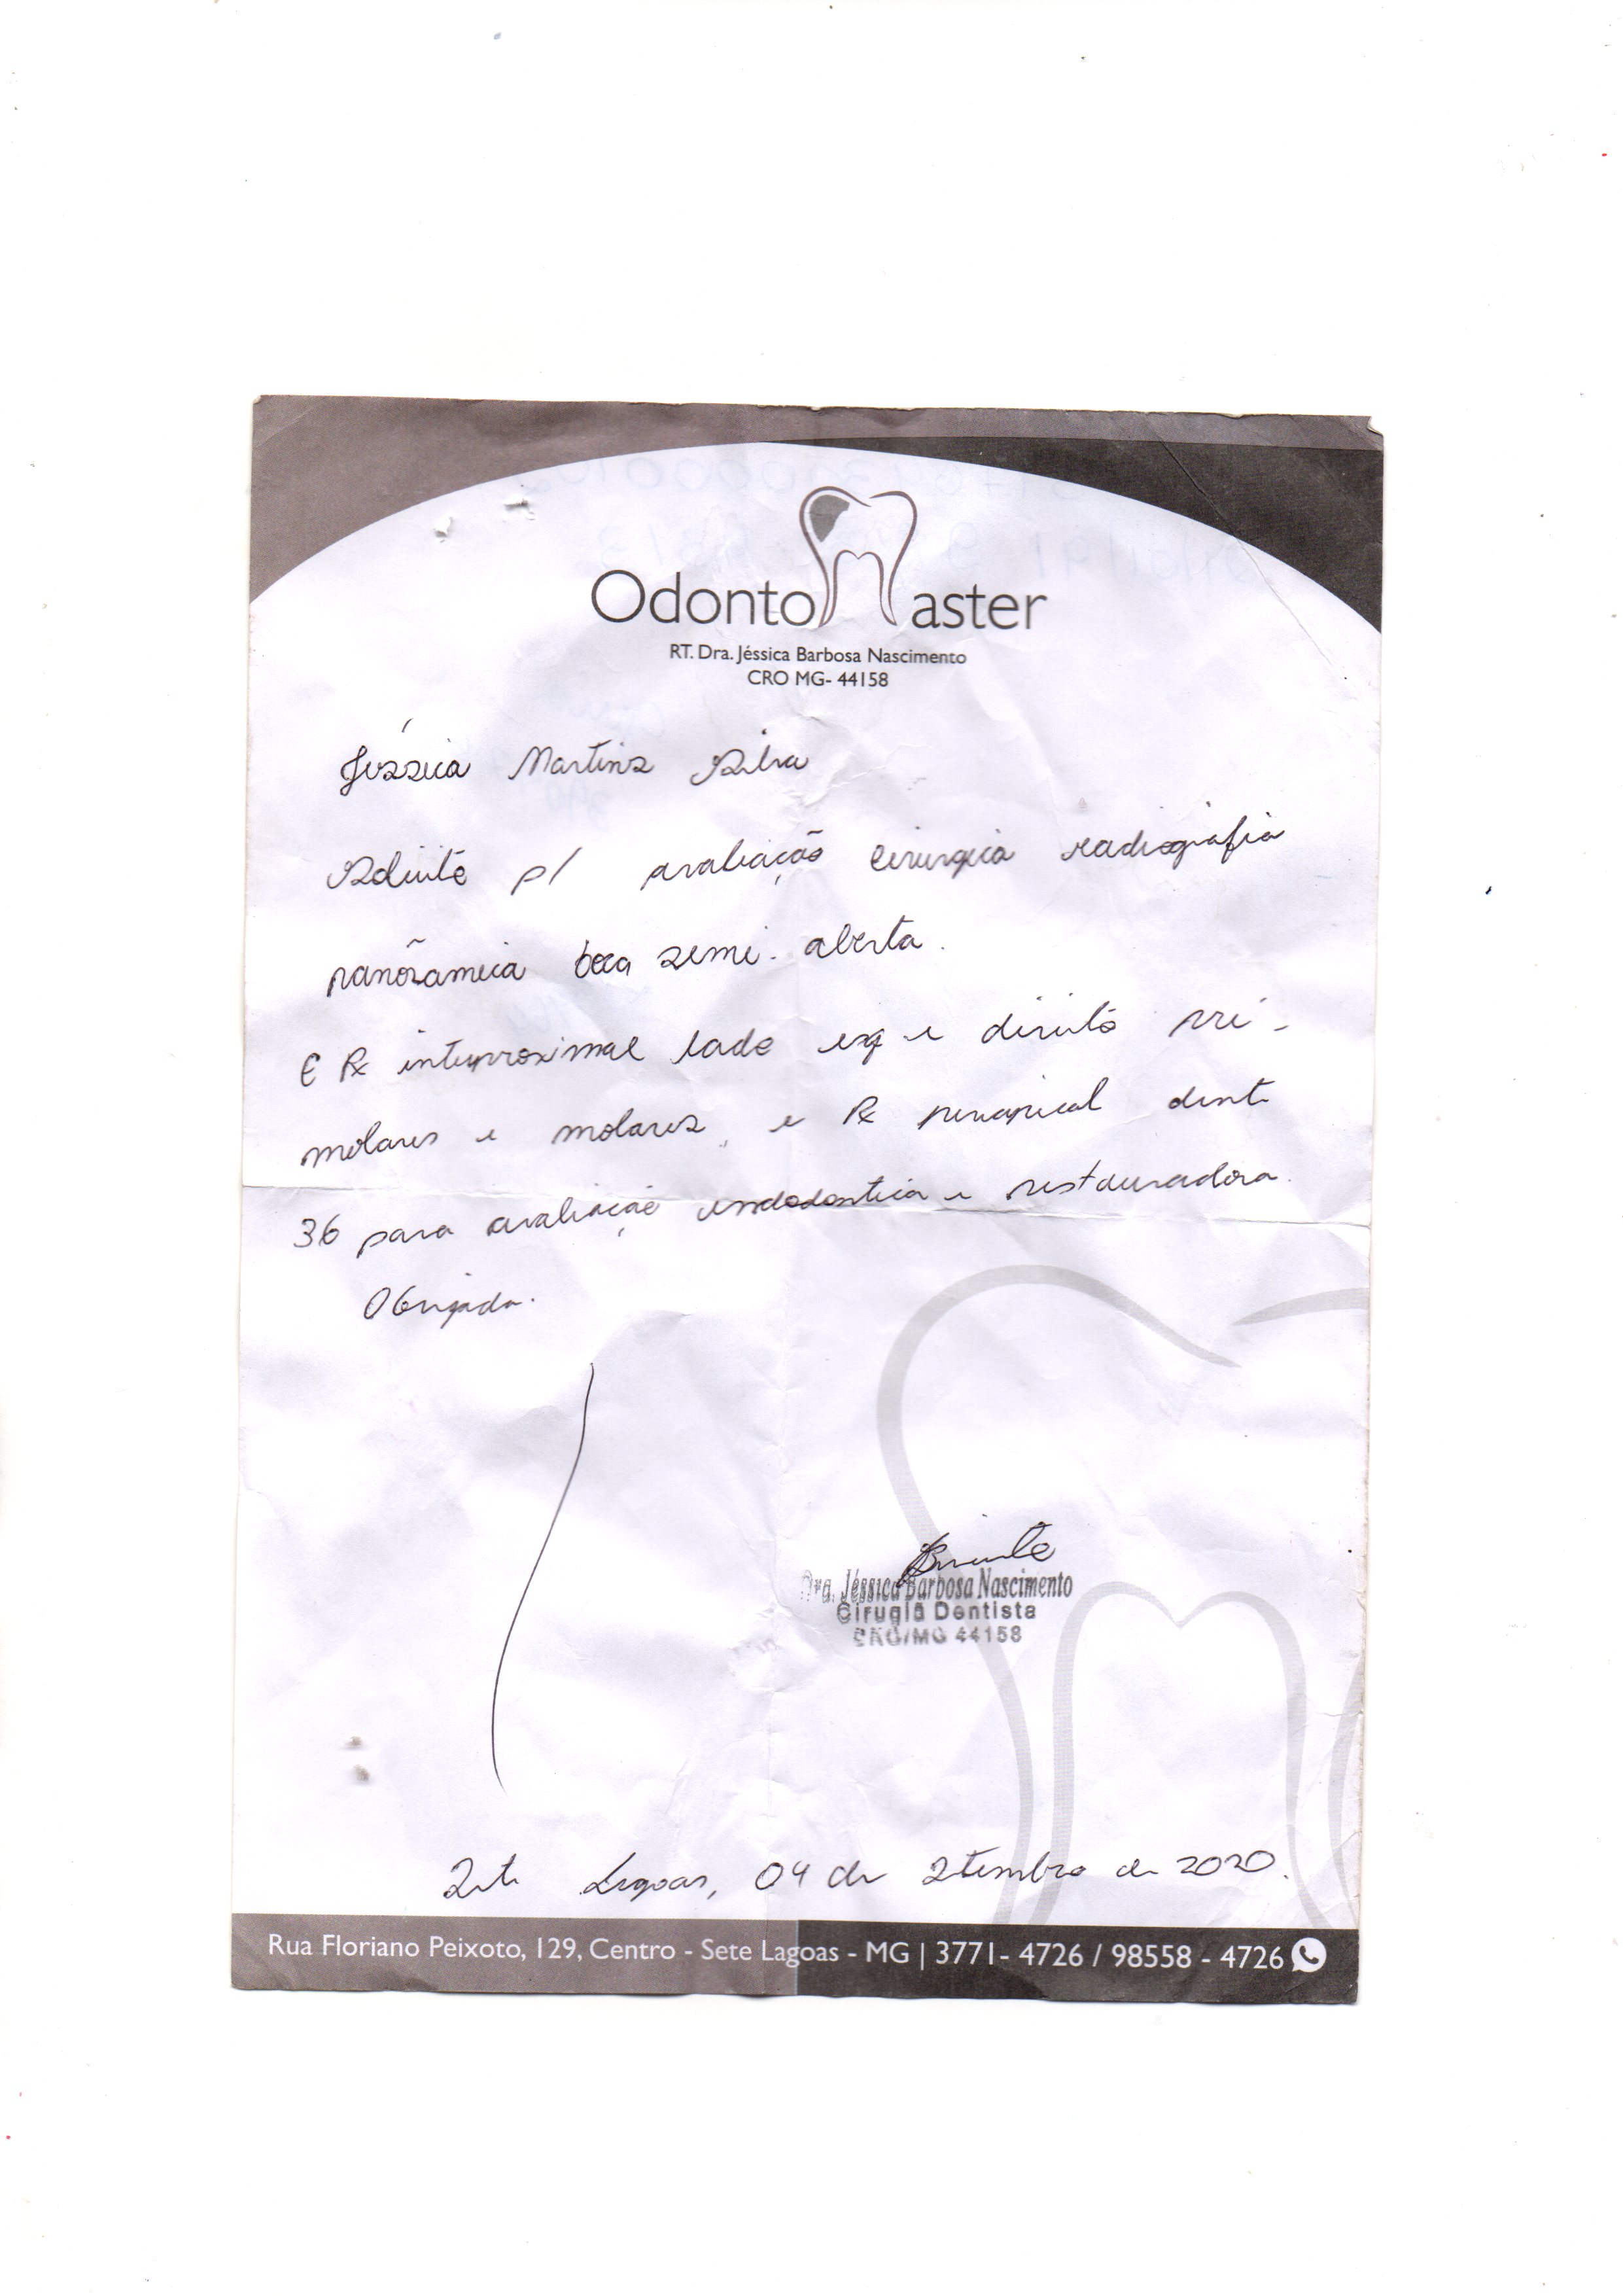 Odonto Master
RT. Dra. Jéssica Barbosa Nascimento
CRO MG- 44158
Jéssica Martins Silva
Solicito p/ avaliação cirurgica radiografia
panorâmica boca semi-aberta.
E Rx interproximal lado esq e direito pré-
molares e molares, e Rx periapical dente
36 para avaliação endodontica e restauradora.
Obrigada.
Dra. Jéssica Barbosa Nascimento
Cirugiã Dentista
CRO/MG 44158
Sete Lagoas, 04 de Setembro de 2020.
Rua Floriano Peixoto, 129, Centro - Sete Lagoas - MG | 3771- 4726 / 98558 - 4726